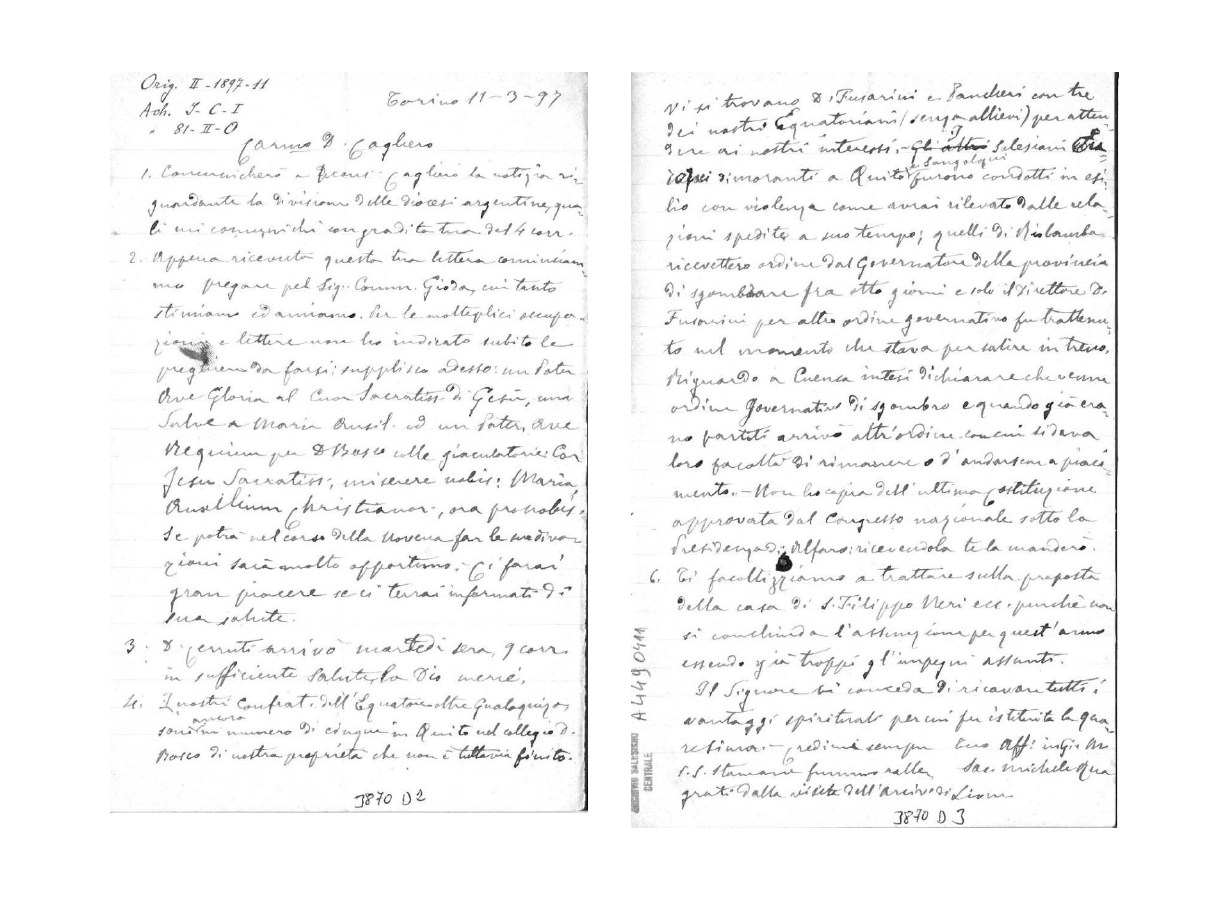 Orig. II - 1897-11
Ach. I - C - I
" 81 - II - O
Torino 11-3-97
Carmo D. Cagliero
1. Comunicherò a Cagliero la notizia ri-
guardante la divisione delle diocesi argentine, qua-
li mi comunichi con gradita tua del 4 corr.
2. Appena ricevuta questa tua lettera cominciam-
mo pregare pel Sig. Comm. Gioda, cui tanto
stimiamo ed amiamo. Per le molteplici occupa-
zioni e lettere non ho indicato subito le
preghiere da farsi: supplisco adesso: un Pater
Ave Gloria al Cuor Sacratiss. di Gesù, una
Salve a Maria Ausil. ed un Pater, Ave
Requiem per D Bosco colle giaculatorie: Cor
Jesu Sacratiss., miserere nobis: Maria,
Auxilium Christianor., ora pro nobis.
Se potrà nel corso della novena far le sue divo-
zioni sarà molto opportuno. - Ci farai
gran piacere se ci terrai informati di
sua salute.
3. D. Cerruti arrivò martedì sera, 9 corr.
in sufficiente salute, la Dio mercé,
4. I nostri Confrat. dell'Equatore oltre Gualaquiza,
ancora
sono in numero di cinque in Quito nel collegio D.
Bosco di nostra proprietà che non è tuttavia finito.
3870 D2
Vi si trovano D. Fusarini e Pancheri con tre
dei nostri Equatoriani (senza allievi) per atten-
dere ai nostri interessi. - Gli altri Salesiani
e Sangolquí
dimoranti a Quito furono condotti in esi-
lio con violenza come avrai rilevato dalle rela-
zioni spedite a suo tempo; quelli di Riobamba
ricevettero ordine dal Governatore della provincia
di sgombrare fra otto giorni e solo il Direttore D.
Fusarini per altro ordine governativo fu trattenu-
to nel momento che stava per salire in treno.
Riguardo a Cuenca intesi dichiarare che venne
ordine Governativo di sgombro e quando già era-
no partiti arrivò altr'ordine con cui si dava
loro facoltà di rimanere o d'andarsene a piaci-
mento. - Non ho copia dell'ultima Costituzione
approvata dal Congresso nazionale sotto la
Presidenza di Alfaro: ricevendola te la manderò.
6. Ti facoltizziamo a trattare sulla proposta
della casa di S. Filippo Neri ecc. purché non
si conchiuda l'assunzione per quest'anno
essendo già troppi gl'impegni assunti.
Il Signore ci conceda di ricavare tutti i
vantaggi spirituali per cui fu istituita la qua-
resima. - Credimi sempre tuo Aff. in G. e M.
S.S. Stamane fummo ralle- Sac. Michele Rua
grati dalla visita dell'Arciv. di Lione
3870 D 3
A4490411
ARCHIVIO SALESIANO
CENTRALE